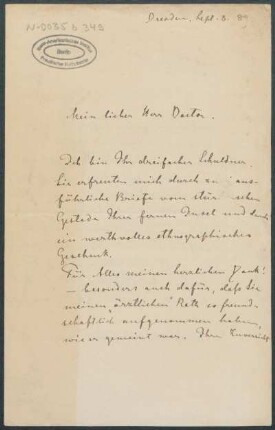 N-0035 b 343
Dresden, Sept. 8. 89
Ibero-Amerikanisches Institut
Berlin
Preußischer Kulturbesitz
Mein lieber Herr Doctor.
Ich bin Ihr dreifacher Schuldner.
Sie erfreuten mich durch
ausführliche Briefe vom
Gestade Ihrer fernen Insel und durch
ein werthvolles ethnographisches
Geschenk.
Für Alles meinen herzlichen Dank!
– besonders auch dafür, daß Sie
meinen „ärztlichen“ Rath so freund-
schaftlich aufgenommen haben,
wie er gemeint war. Ihre Zuversicht